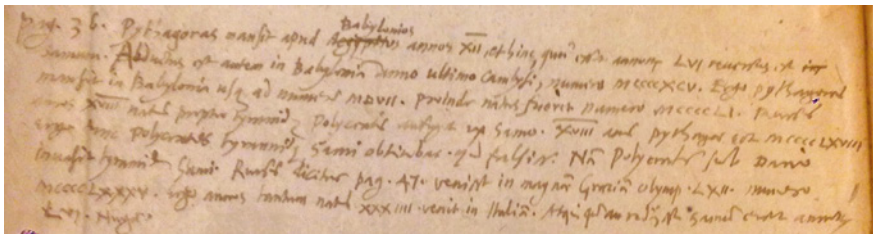 pag. 36. Pythagoras mansit apud Babylonios Aegyptios annos XII, et hinc, annum LVI reversus est in
Samum. Abductus est autem in Babyloniam anno ultimo Cambysi, numero MCCCCXCV. Ergo Pythagoras
mansit in Babylonia usq. ad numerum MDVII. Proinde natus fuerit numero MCCCCLI. Rursus
annos XVIII natus propter tyrannid Polycratis aufugit ex Samo. XVIII annus Pythagor est MCCCCLXVIII
ergo tunc Polycrates tyrannid Sami obtinebat. qd falsum. Nam Polycrates sub Dario
invasit tyrannid Sami. Rursus dicitur pag. 47. venisse in magnam Graeciam olymp. LXII. numero
MCCCCLXXXV. ergo annos tantum natus XXXIIII venit in Italiam. Atqui Samum erat annorum
LVI. Nugae